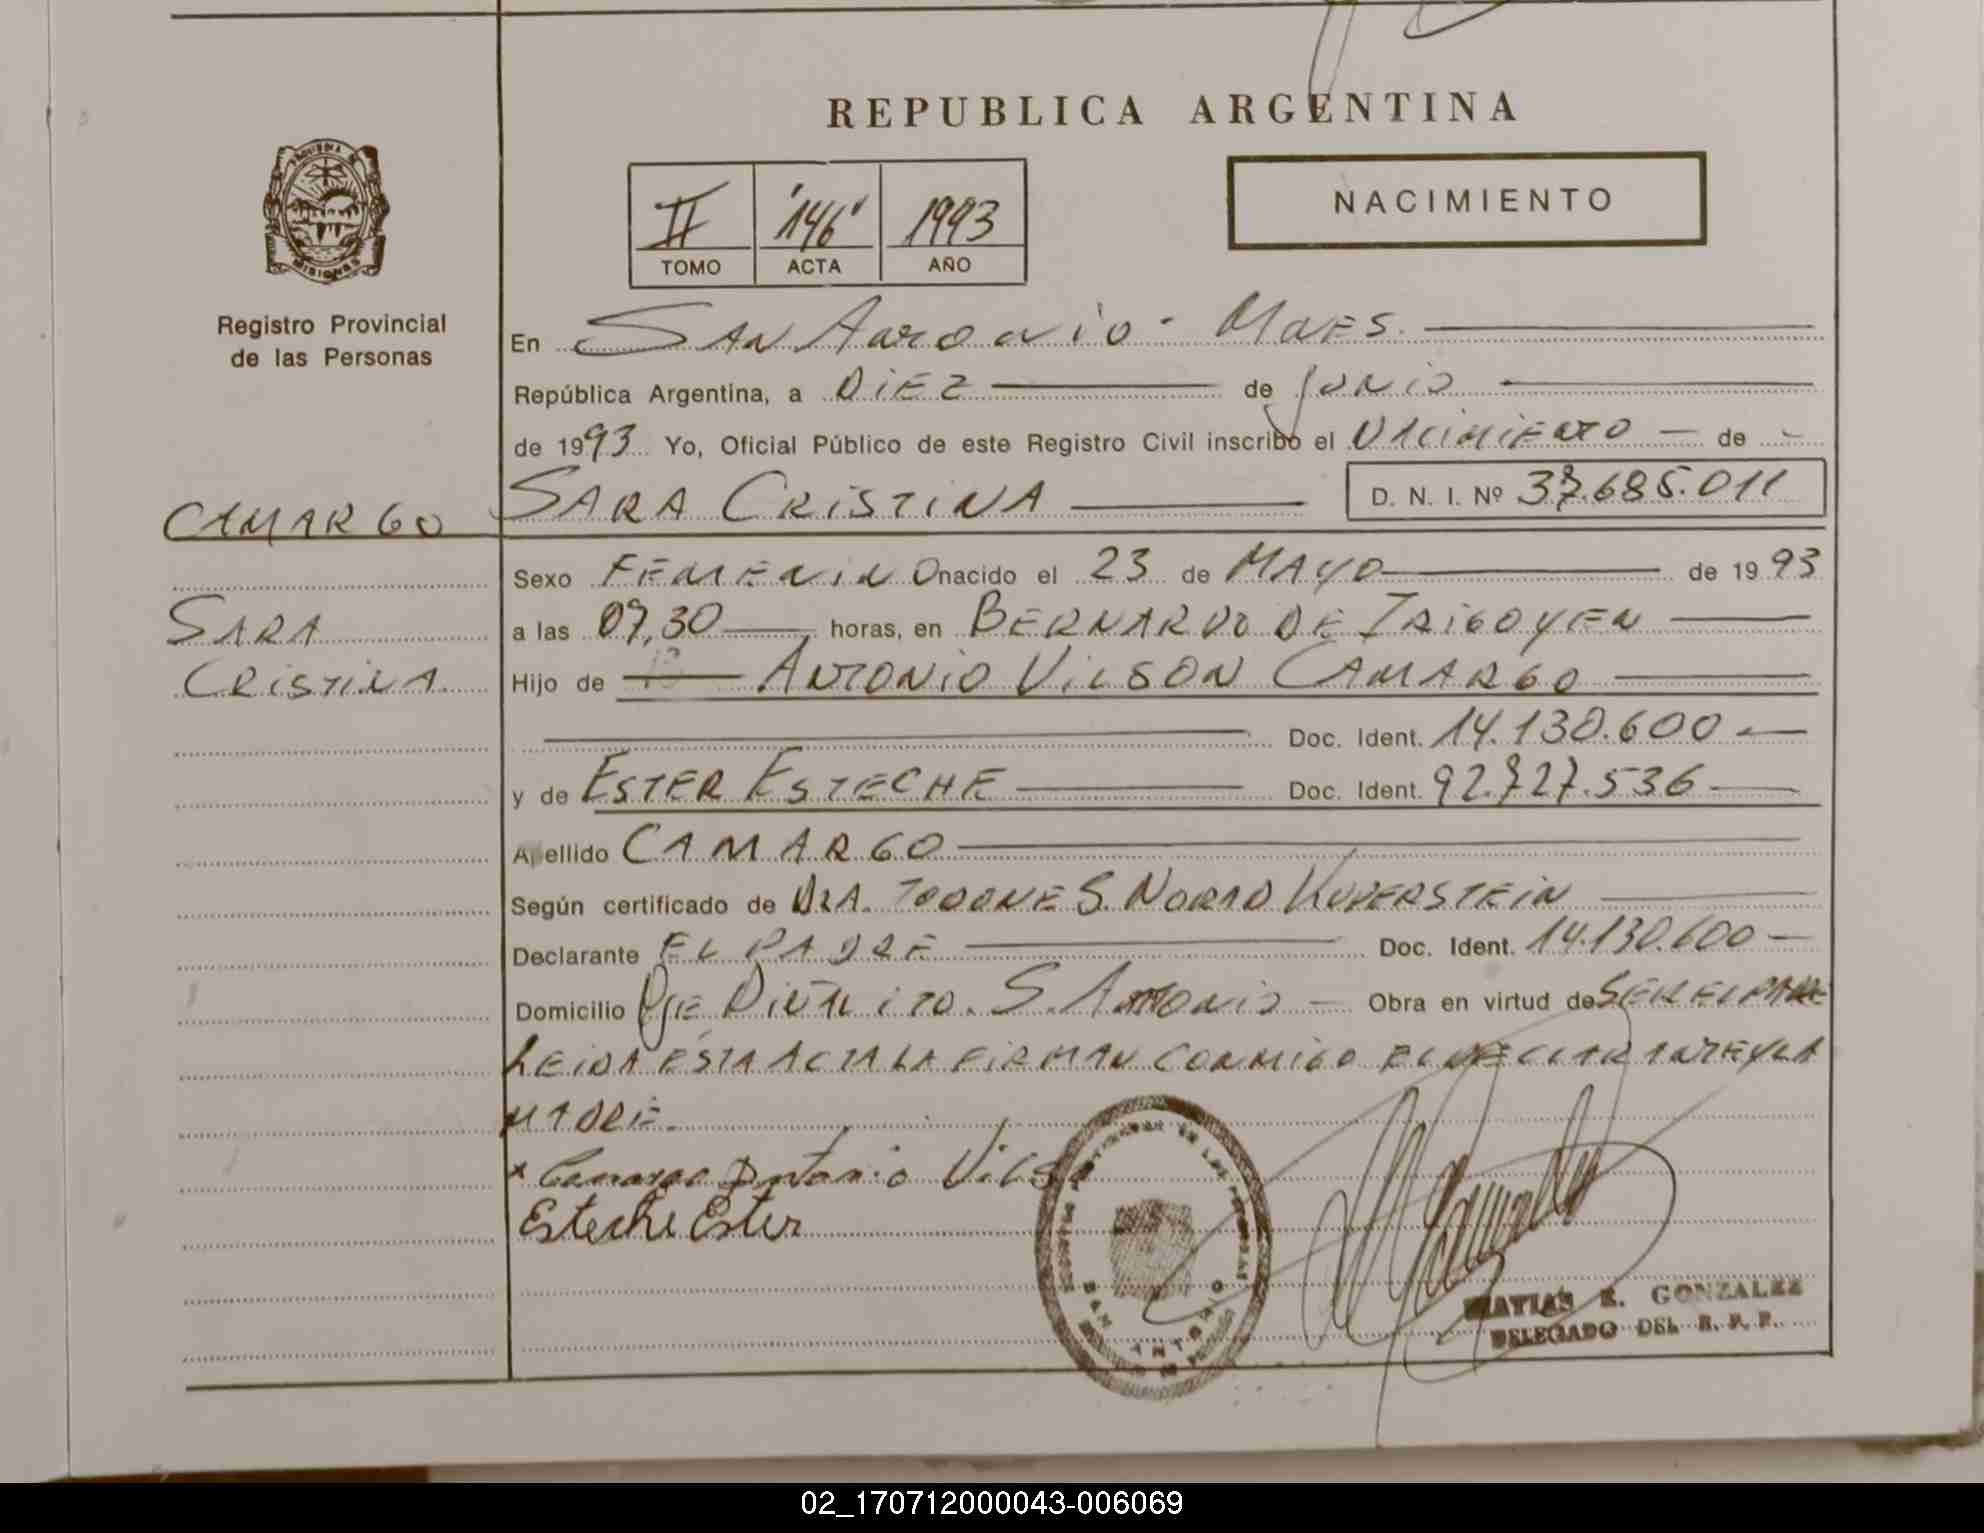 REPUBLICA ARGENTINA
PROVINCIA DE
MISIONES
Registro Provincial
de las Personas
II '146' 1993
TOMO ACTA AÑO
NACIMIENTO
En SAN ANTONIO - MNES.
República Argentina, a DIEZ de JUNIO
de 1993 Yo, Oficial Público de este Registro Civil inscribo el NACIMIENTO de
CAMARGO SARA CRISTINA D. N. I. Nº 37.685.011
Sexo FEMENINO nacido el 23 de MAYO de 1993
SARA a las 09,30 horas, en BERNARDO DE IRIGOYEN
CRISTINA Hijo de ANTONIO VILSON CAMARGO
Doc. Ident. 14.130.600
y de ESTER ESTECHE Doc. Ident. 92.727.536
Apellido CAMARGO
Según certificado de DRA. S. NORMA KUPERSTEIN
Declarante EL PADRE Doc. Ident. 14.130.600
Domicilio PJE S. ANTONIO Obra en virtud de SER EL PADRE
LEIDA ESTA ACTA LA FIRMAN CONMIGO EL DECLARANTE Y LA
MADRE.
x Camargo Antonio Vilson
Esteche Ester
SAN ANTONIO
MATIAS E. GONZALEZ
DELEGADO DEL R. P. P.
02_170712000043-006069